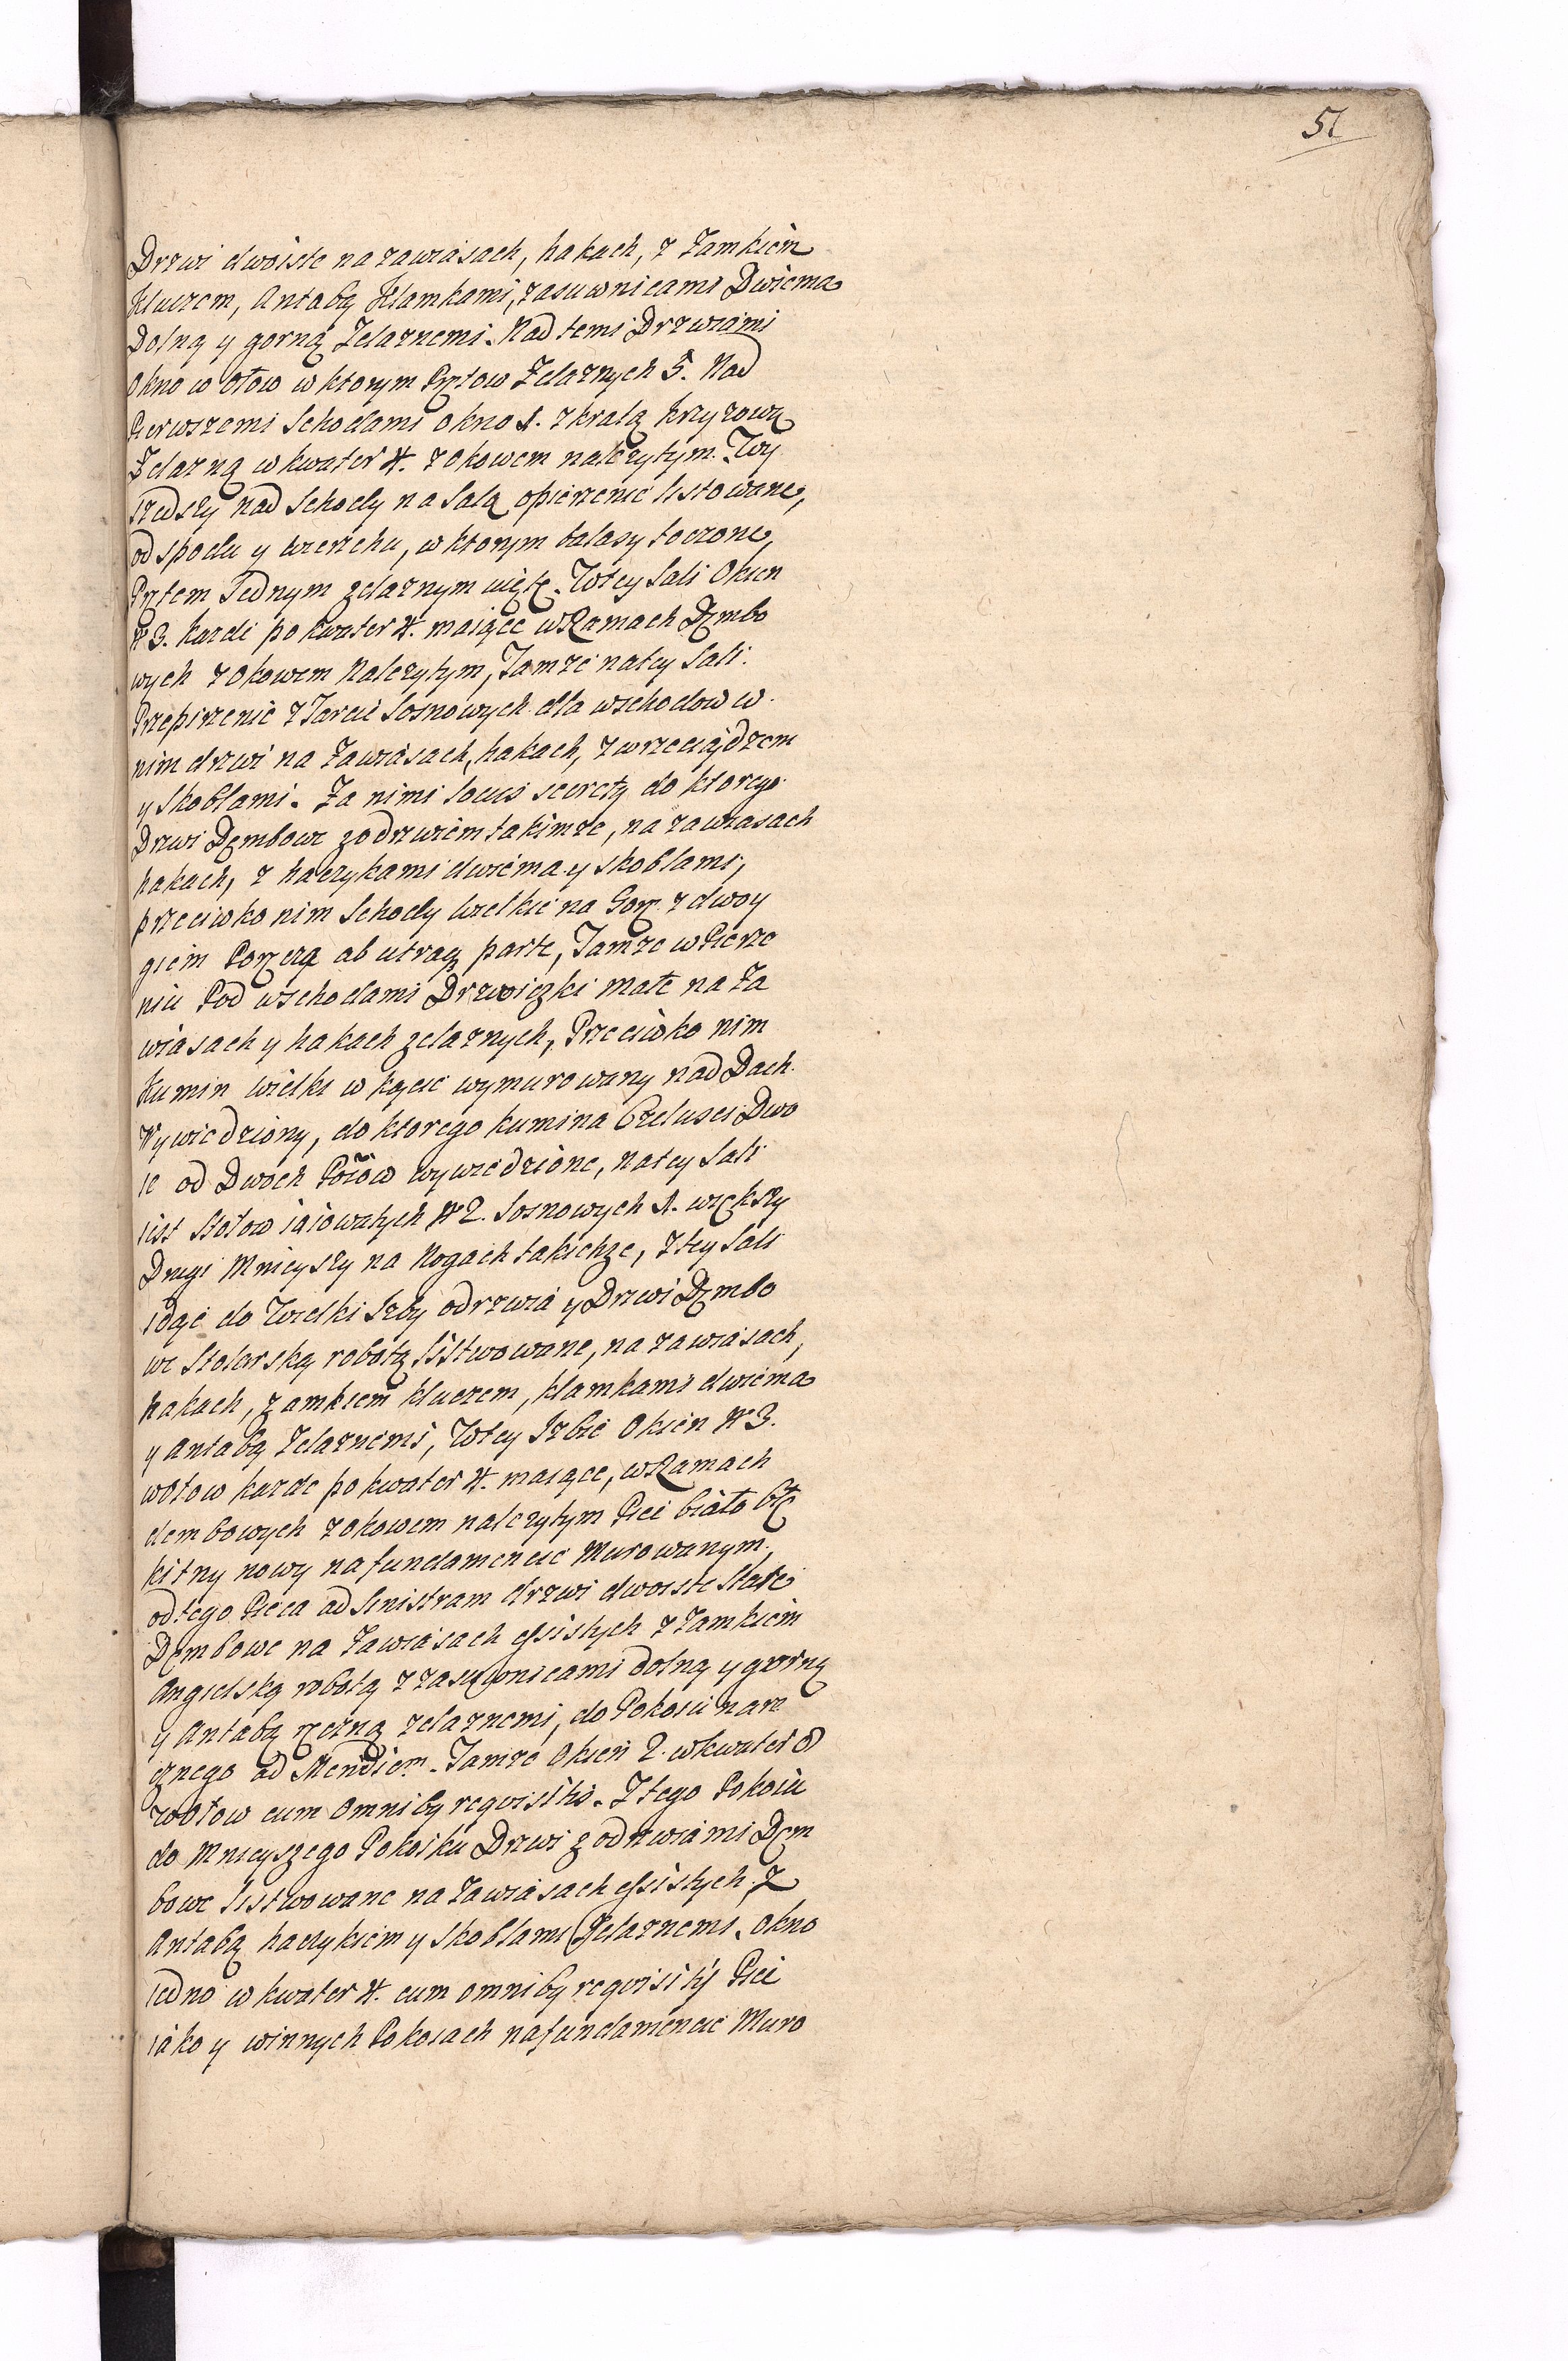 51
Drzwi dwoiste na zawiasach, hakach, z Zamkiem
Kluczem, Antabą Klamkami, zasuwnicami Dwiema
Dolną y gorną Zelaznemi. Nad temi Drzwiami
Okno w Ołow w ktorym Prętow Zelaznych 5. Nad
Pierwszemi Schodami okno 1. z kratą krzyzową
Zelazną w kwater 4. z okowem nalezytym. Wy
szedszy nad Schody na Salą opierzenie listowane,
od spodu y wierzchu, w ktorym balasy toczone,
Prętem Jednym zelaznym uięte. W tey Sali Okien
N 3. kazde po kwater 4. maiące w Ramach Dęmbo
wych z okowem Nalezytym, Tamze na tey Sali.
Przepirzenie z Tarcic Sosnowych dla wschodow w
nim drzwi na Zawiasach, hakach, z wrzeciądzem
y Skoblami. Za nimi locus secrety do ktorego
Drzwi Dębowe z odrzwiem takimze, na zawiasach
hakach, z haczykami dwiema y skoblami,
przeciwko nim Schody Wielkie na Gorę z dwoy
giem Poręczą ab utraq parte, Tamze w Pierze
niu Pod wschodami Drzwiczki małe na Za
wiasach y hakach zelaznych, Przeciwko nim
Kumin wielki w kącie wymurowany nad Dach
Wywiedziony, do ktorego kumina Czelusci Dwo
ie od Dwoch Poiow wywiedzione, na tey Sali
iest Stołow iaiowatych N 2. Sosnowych 1. większy
Drugi Mnieyszy na Nogach takichze, Z tey Sali
idąc do Wielki Izby odrzwia y Drzwi Dęmbo
we Stolarską robotą listwowane, na zawiasach,
hakach, zamkiem kluczem, klamkami dwiema
y Antabą Zelaznemi, W tey Izbie Okien N 3.
w Ołow kazde po kwater 4. maiące, w Ramach
dembowych z okowem nalezytym Piec biało błę
kitny nowy na fundamencie Murowanym,
od tego Pieca ad Sinistram drzwi dwoiste Stare
Dęmbowe na Zawiasach essistych z Zamkiem
Angielską robotą z zasuwnicami dolną y gorną
y Antabą ręczną zelaznemi, do Pokoiu naro
znego ad Meridiem. Tamze Okien 2. w kwater 8
w Ołow cum omnibq reqvisitis. Z tego Pokoiu
do Mnieyszego Pokoiku Drzwi z odrzwiami Dęm
bowe listwowane na Zawiasach essistych, Z
Antabą haczykiem y Skoblami Zelaznemi. Okno
iedno w kwater 4. cum omnibq reqvisitis Piec
iako y w innych Pokoiach na fundamencie Muro